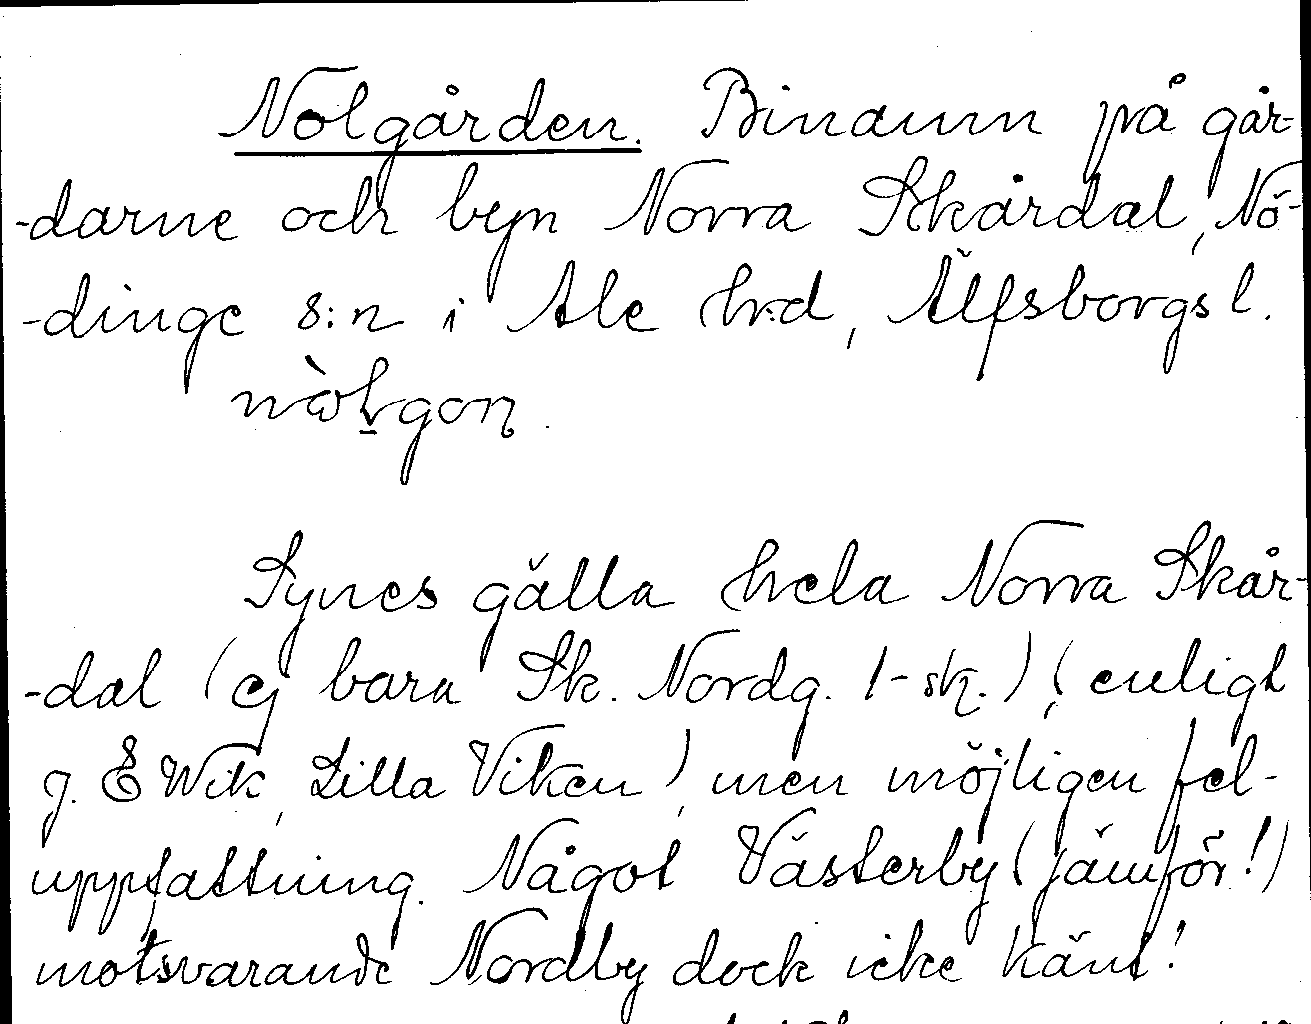 Nolgården. Binamn på går-
-darne och byn Norra Skårdal, Nö-
-dinge s:n i Ale hrd, Älfsborgs l.
Synes gälla hela Norra Skår-
-dal (ej bara Sk. Nordg. 1-sk.) (enligt
J. E Wik, Lilla Viken), men möjligen fel-
uppfattning. Något Västerby (jämför!)
motsvarande Nordby dock icke känt!